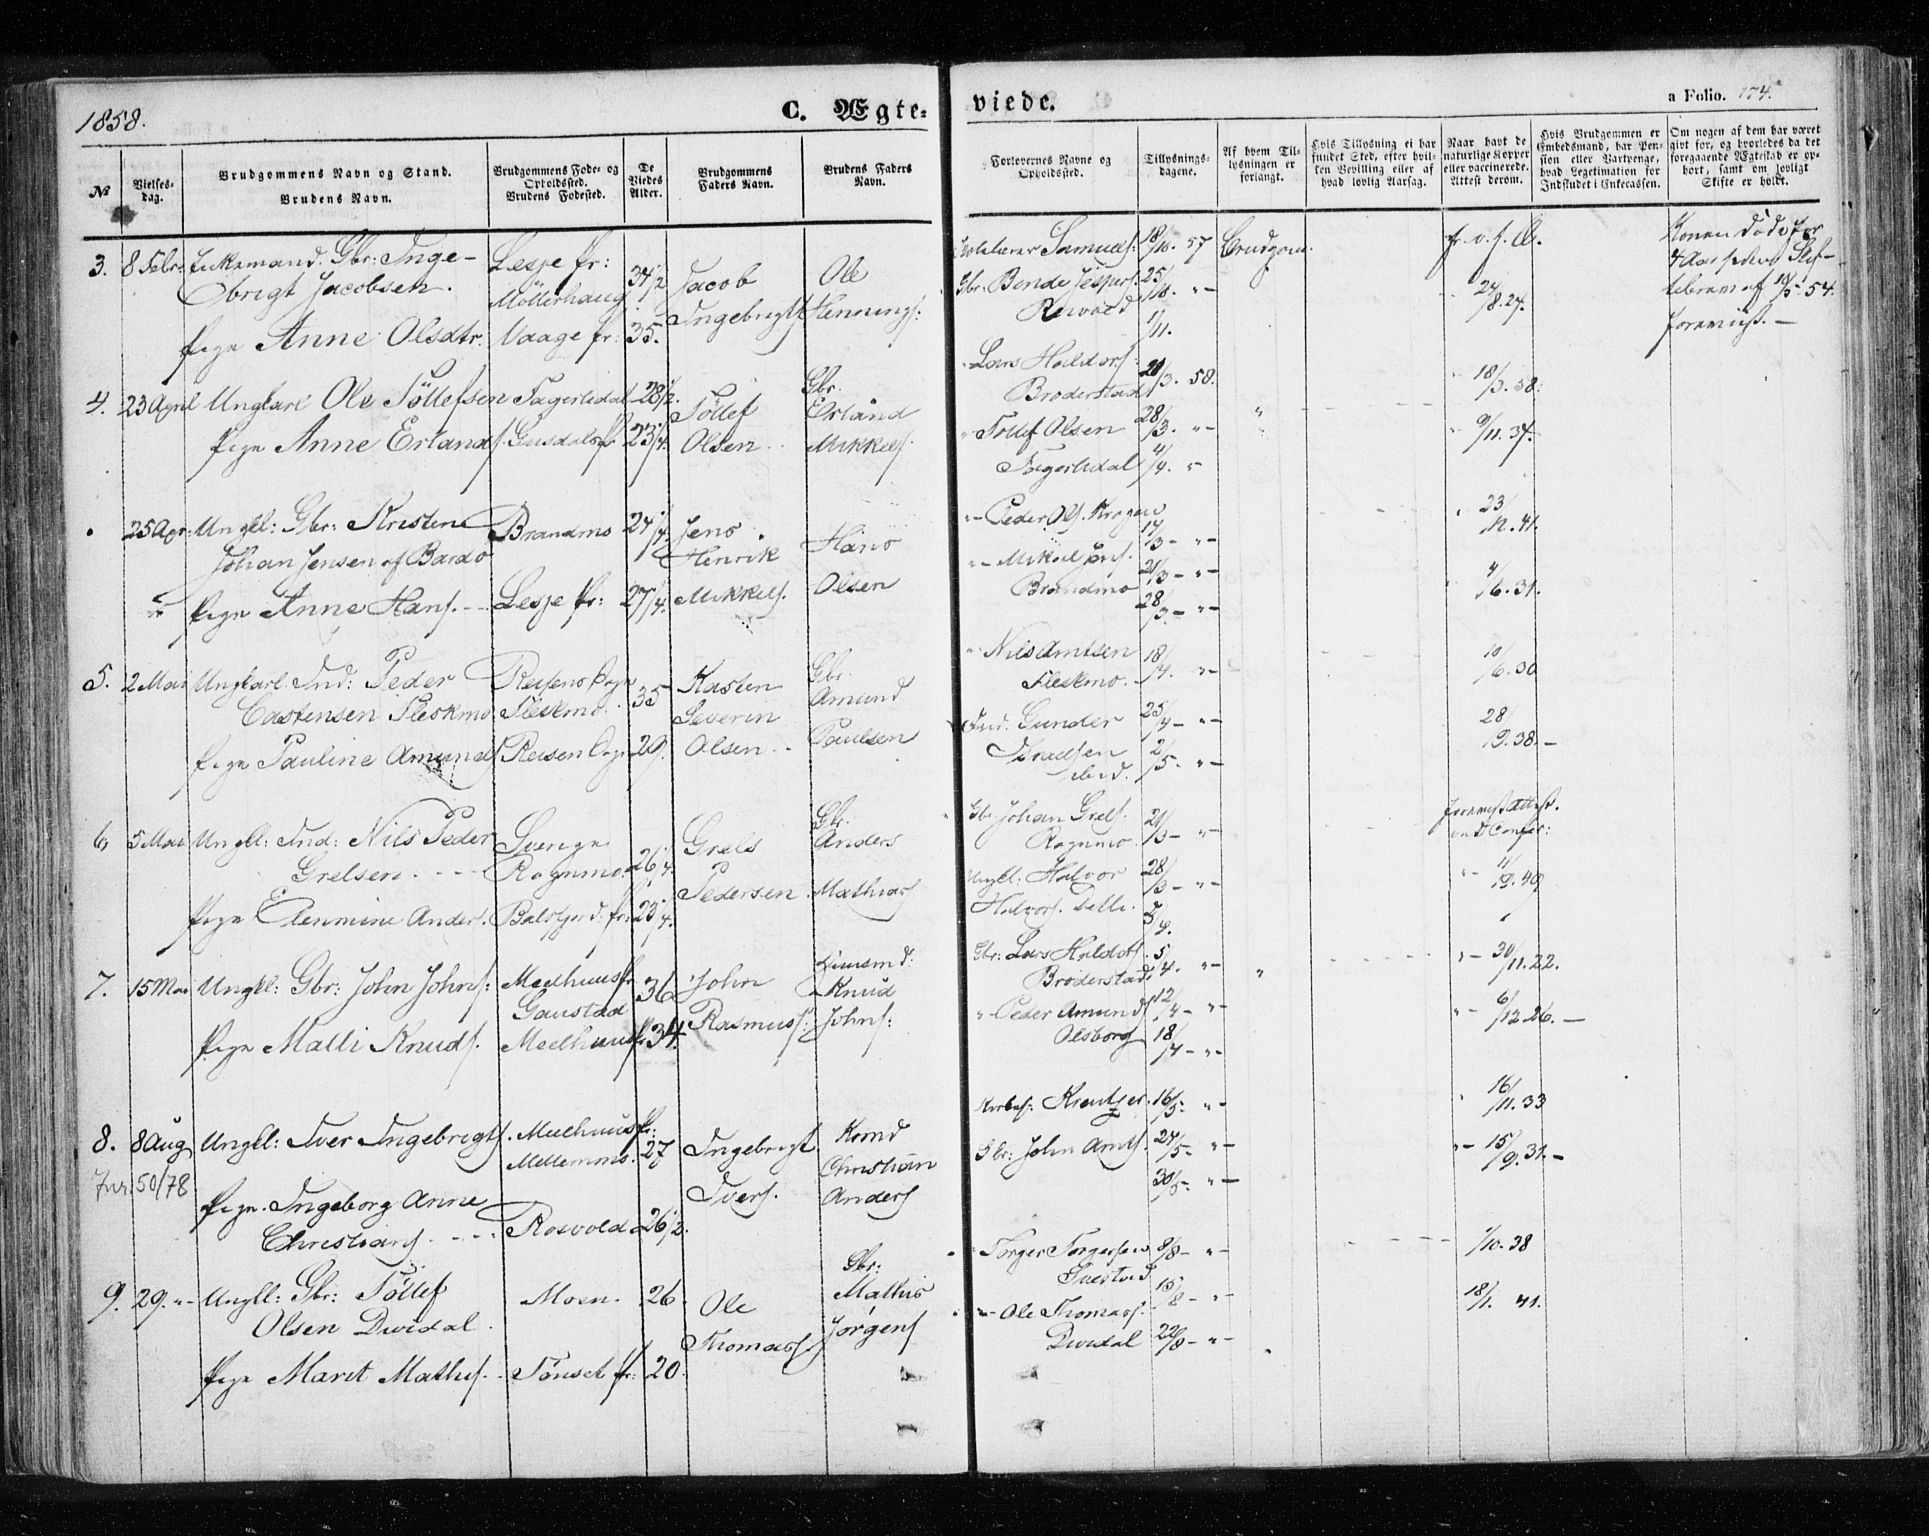 1858.
C. Ægte-
viede.
a Folio. 174.
No
Vielses-
dag.
Brudgommens Navn og Stand.
Brudens Navn.
Brudgommens Føde- og
Opholdssted.
Brudens Fødested.
De
Viedes
Alder.
Brudgommens
Faders Navn.
Brudens Faders
Navn.
Forlovernes Navne og
Opholdssted.
Tillysnings-
dagene.
Af hvem Til-
lysningen er
forlangt.
Hvis Tillysning ei har
fundet Sted, efter hvil-
ken Bevilling eller af
hvad lovlig Aarsag.
Naar havt de
naturlige Kopper
eller vaccinerede.
Attest derom.
Hvis Brudgommen er
Embedsmand, har Pen-
sion eller Vartpenge,
hvad Legitimation for
Indskudet i Enkecassen.
Om nogen af dem har været
givt før, og hvorledes da det
foregaaende Ægteskab er op-
hørt, samt om lovligt
Skifte er holdt.
3. 8 Febr: Enkemand. Gbr: Inge-
brigt Jacobsen.
Lesje Pr:
Möllerhaug
34 1/2
Jacob
Ingebrigts
Ole
Hennings:
Pige Anne Olsdtr. Vaage Pr: 35.
Samuels: 18/10. 57 Brudgom.
Gbr: Bonde Jespers. 25/10. "-
1/11.
24/8. 27.
Konen döde for
4 Aar siden Skif-
tebrev af 18/5 54
forevist. -
4. 23 April Ungkarl Ole Töllefsen Fagerlidal 28 1/2.
Töllef
Olsen
Gbr.
Erland
Mikkels.
Pige Anne Erlands. Gusdals Pr 23 3/4.
" Lars Haldors:
Broderstad 21/3. 58.
" Töllef Olsen 28/3. "-
Fagerlidal 4/4. "
18/3. 58.
9/11. 34.
25 Apr: Ungkl: Gbr: Kristen
Johan Jensen af Bardo
Brandmo 24 1/4.
Jens
Henrik
Mikkels.
Hans
Olsen
Pige Anne Hans. - Lesje Pr: 27 1/4.
"- Peder Ols. Krogen
14/3- "-
"- Mikkel Jens. 21/3- "-
Brandmo 28/3- "-
23/12. 41.
4/6. 31.
5. 2 Mai Ungkarl. Ind: Peder
Castensen Fleskmo
Reisens Sogn
Fleskmo.
35
Kasten
Severin
Olsen -
Gbr.
Amund
Paulsen
Pige Pauline Amunds. Reisen Sogn 29.
" Nils Amtsen 18/4. "-
Fleskmo.
Ind. Gunder 25/4- "-
2/5. "-
ibid.
10/6. 30
28/9. 38. -
6. 5 Mai Ungkl: Ind: Nils Peder
Grelsen. - - -
Sverige
Rognmo
26 1/4.
Grels
Pedersen
Gbr.
Anders
Mathias.
Pige Elenmine Anders. Balsfjord. Pr: 23 1/4.
Gbr Johan Grels. 21/3- "-
Rognmo.
Ungkl: Halvor 28/3- "-
Halvors.
Forevist Attest.
11/9. 40.
7. 15 Mai Ungkl: Gbr: John Johns:
Meelhuus Pr
Gaustad
36
John
Rasmuss:
Huusmd:
Knud
Johns:
Pige Malli Knuds. Meelhuus Pr 34.
Gbr: Lars Haldors. 5/4. "-
Broderstad
"- Peder Amunds. 12/4- "-
Olsborg 18/4- "-
"- 30/11. 22.
"- 6/12 26. -
8. 8 Aug Ungkl: Iver Ingebrigts.
Meelhuus Pr:
Mellemmo.
27
Ingebrigt
Ivers.
Christian
Anders
Jnr. 50/78
Pige. Ingeborg Anne
Christians. - - -
Rosvold 26 1/2.
Kreutzer. 16/5: "-
Gbr: John Amts. 24/5- "-
30/5- "-
16/11. 33
"- 15/9. 31. -
9. 29. "- Ungkl: Gbr: Töllef
Olsen Dividal.
Moen.
26.
Ole
Thomass.
Gbr:
Mathis
Jørgens
Pige Marit Mathis. Tönset Pr: 20.
"- Torger Torgersen 8/8- "-
15/8- "-
"- Ole Thomass.
Dividal 22/8- "-
1/10. 38
18/1. 41.